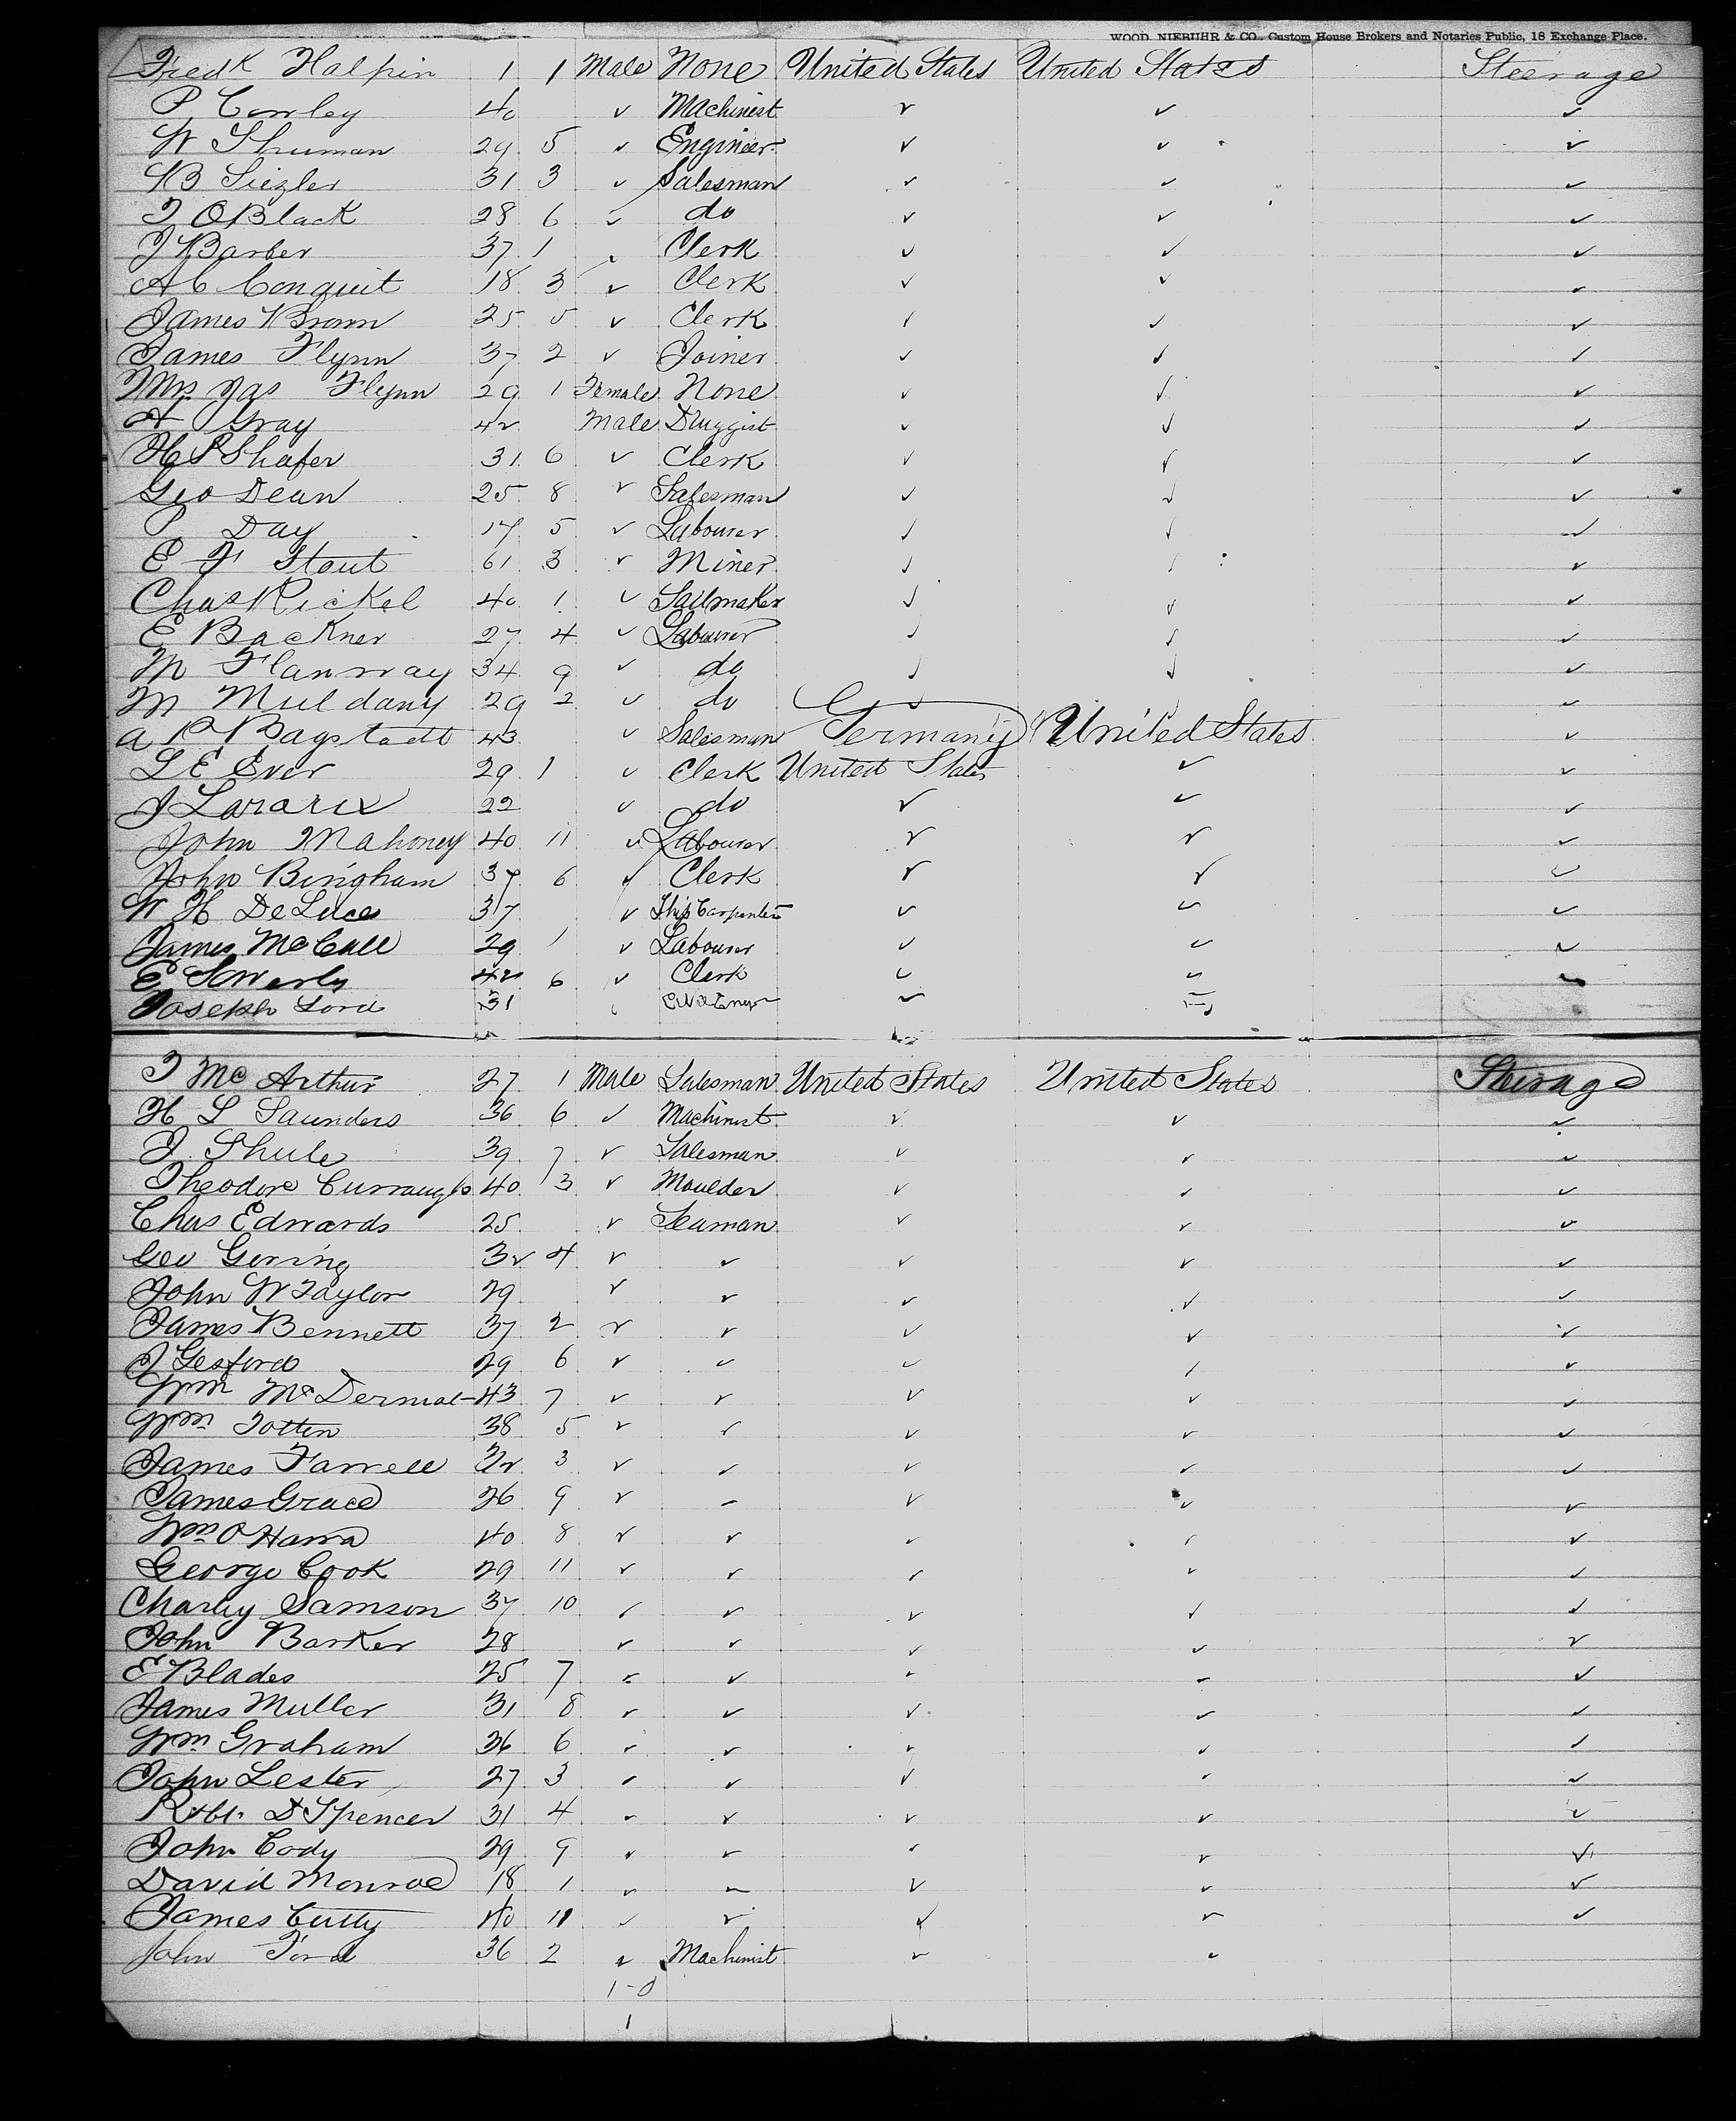 WOOD, NIEBUHR & CO., Custom House Brokers and Notaries Public, 18 Exchange Place.
Fredk Halpin 1 1 Male None United States United States Steerage
P Conley 40 ✓ Machinist ✓ ✓ ✓
W Shuman 29 5 ✓ Engineer ✓ ✓ ✓
B Siezler 31 3 ✓ Salesman ✓ ✓ ✓
T O Black 28 6 ✓ do ✓ ✓ ✓
J Barber 37 1 ✓ Clerk ✓ ✓ ✓
A C Conquit 18 3 ✓ Clerk ✓ ✓ ✓
James Brown 25 5 ✓ Clerk ✓ ✓ ✓
James Flynn 37 2 ✓ Joiner ✓ ✓ ✓
Mrs Jas Flynn 29 1 Female None ✓ ✓ ✓
A Gray 42 Male Druggist ✓ ✓ ✓
H P Shafer 31 6 ✓ Clerk ✓ ✓ ✓
Geo Dean 25 8 ✓ Salesman ✓ ✓ ✓
P Day 17 5 ✓ Labourer ✓ ✓ ✓
E F Stout 61 3 ✓ Miner ✓ ✓ ✓
Chas Rickel 40 1 ✓ Sailmaker ✓ ✓ ✓
E Backner 27 4 ✓ Labourer ✓ ✓ ✓
M Flanway 34 9 ✓ do ✓ ✓ ✓
M Muldany 29 2 ✓ do ✓ ✓ ✓
A P Bagstadt 43 ✓ Salesman Germany United States ✓
L E Ever 29 1 ✓ Clerk United States ✓ ✓
J Lararie 22 ✓ do ✓ ✓ ✓
John Mahoney 40 11 ✓ Labourer ✓ ✓ ✓
John Bingham 37 6 ✓ Clerk ✓ ✓ ✓
W H DeLuce 37 ✓ Ship Carpenter ✓ ✓ ✓
James McCall 29 1 ✓ Labourer ✓ ✓ ✓
E Sowerby 42 6 ✓ Clerk ✓ ✓ ✓
Joseph Lord 31 ✓ ✓
T McArthur 27 1 Male Salesman United States United States Steerage
H L Saunders 36 6 ✓ Machinist ✓ ✓ ✓
J. Shule 39 7 ✓ Salesman ✓ ✓ ✓
Theodore 40 3 ✓ Moulder ✓ ✓ ✓
Chas Edwards 25 ✓ Seaman ✓ ✓ ✓
Geo Gering 32 4 ✓ ✓ ✓ ✓ ✓
John W Taylor 29 ✓ ✓ ✓ ✓ ✓
James Bennett 37 2 ✓ ✓ ✓ ✓ ✓
J Gesford 29 6 ✓ ✓ ✓ ✓ ✓
Wm McDermot 43 7 ✓ ✓ ✓ ✓ ✓
Wm Totten 38 5 ✓ ✓ ✓ ✓ ✓
James Farrell 32 3 ✓ ✓ ✓ ✓ ✓
James Grace 26 9 ✓ ✓ ✓ ✓ ✓
Wm O Harra 40 8 ✓ ✓ ✓ ✓ ✓
George Cook 29 11 ✓ ✓ ✓ ✓ ✓
Charley Samson 37 10 ✓ ✓ ✓ ✓ ✓
John Barker 28 ✓ ✓ ✓ ✓ ✓
E Blades 25 7 ✓ ✓ ✓ ✓ ✓
James Muller 31 8 ✓ ✓ ✓ ✓ ✓
Wm Graham 36 6 ✓ ✓ ✓ ✓ ✓
John Lester 27 3 ✓ ✓ ✓ ✓ ✓
Robt. D Spencer 31 4 ✓ ✓ ✓ ✓ ✓
John Cody 29 9 ✓ ✓ ✓ ✓ ✓
David Monroe 18 1 ✓ ✓ ✓ ✓ ✓
James Cutty 40 11 ✓ ✓ ✓ ✓ ✓
John Ford 36 2 ✓ Machinist ✓ ✓
1-0
1